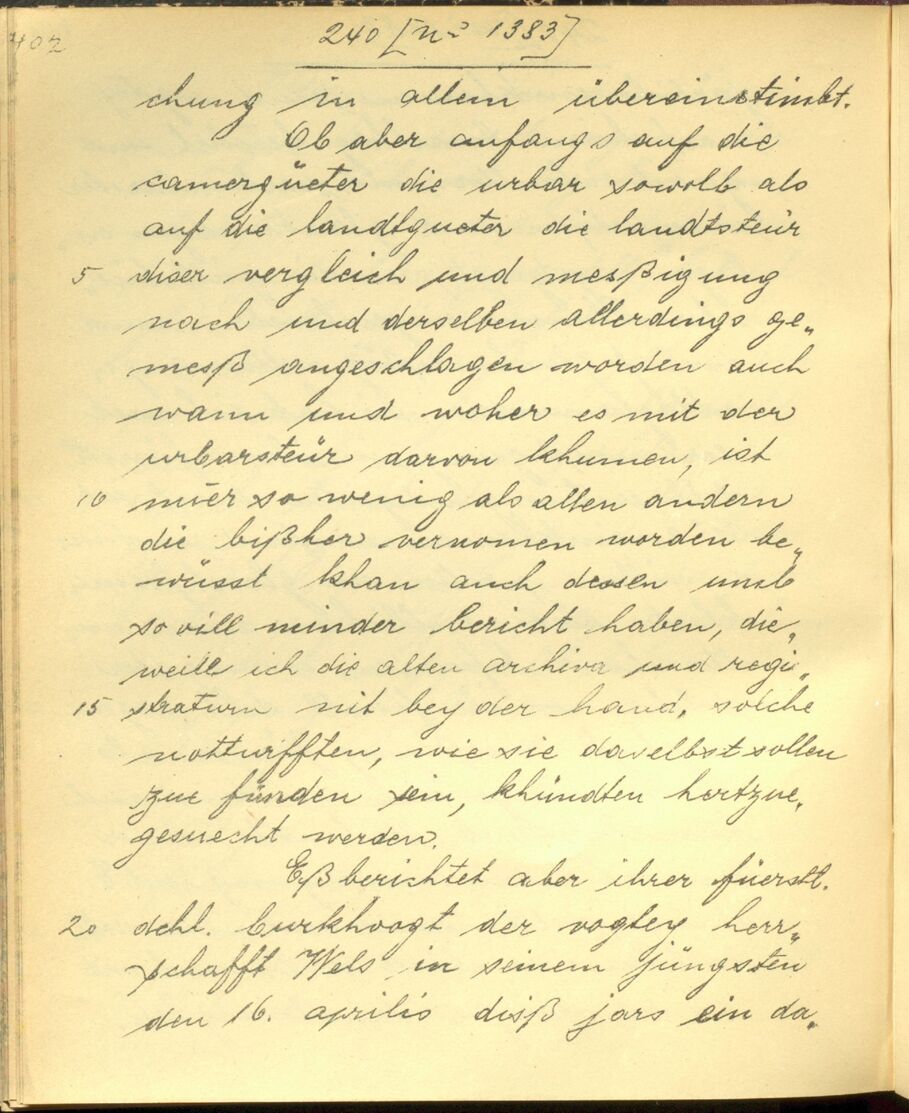 402
240 [No 1383]
chung in allem übereinstimbt.
Ob aber anfangs auf die
camergüeter die urbar sowolb als
auf die landtgueter die landtsteür
5 diser vergleich und mesßigung
nach und derselben allerdings ge„
mesß angeschlagen worden auch
wann und woher es mit der
urbarsteür darvon khumen, ist
10 mier so wenig als allen andern
die bißher vernomen worden be„
wüsst khan auch dessen umb
so vill minder bericht haben, die„
weill ich die alten archiva und regi„
15 straturn nit bey der hand, solche
notturfften, wie sie daselbst sollen
zue fünden sein, khündten hertzue„
gesuecht werden.
Eß berichtet aber ihrer füerstl.
20 dchl. burkhvogt der vogtey herr„
schafft Wels in seinem jüngsten
den 16. aprilis diß jars ein da„